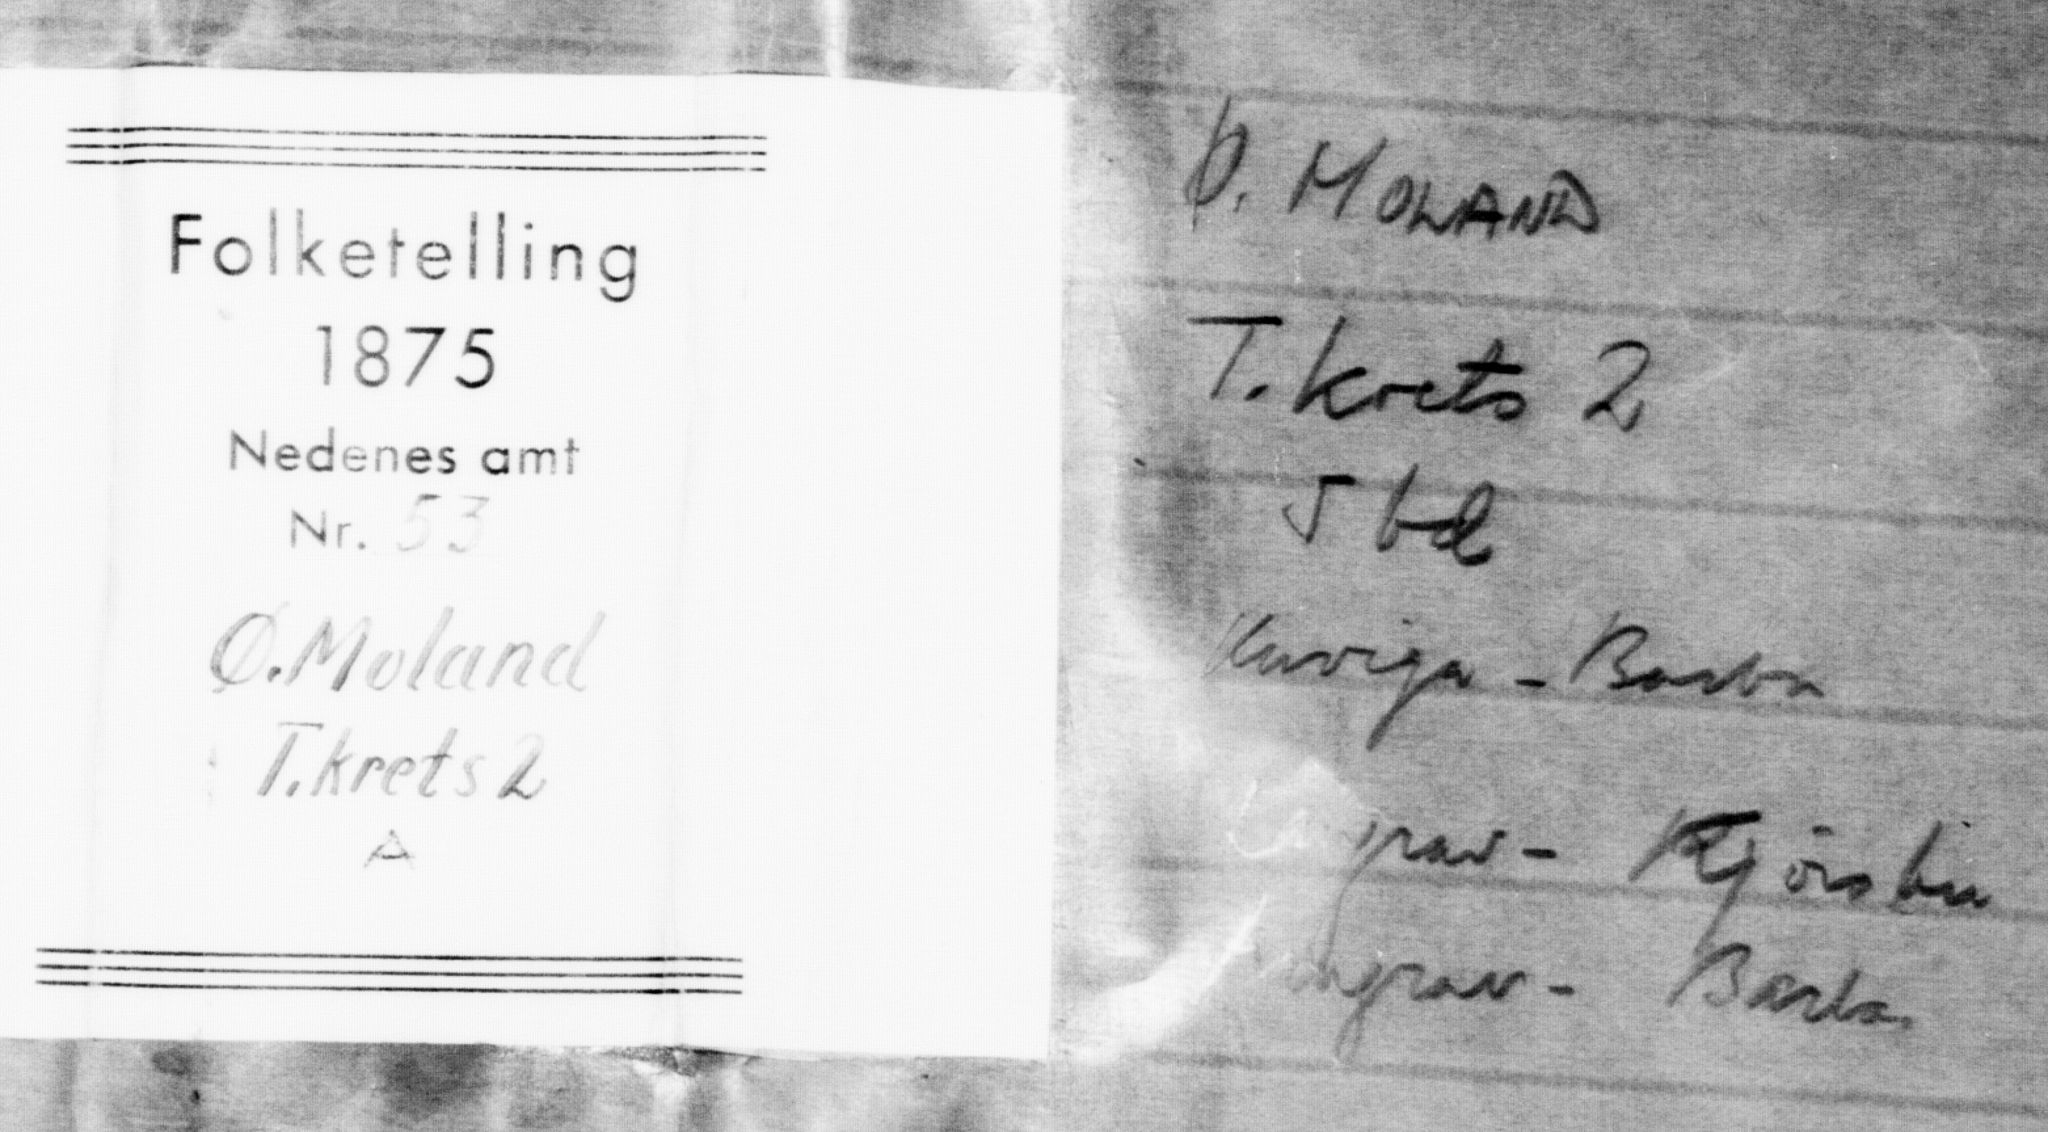 Folketelling
1875
Nedenes amt
Nr. 53
Ø. Moland
T. krets 2
A
Ø. MOLAND
T. krets 2
5 bd
Kuviga - Barbu
Kjörsbu
Barbu